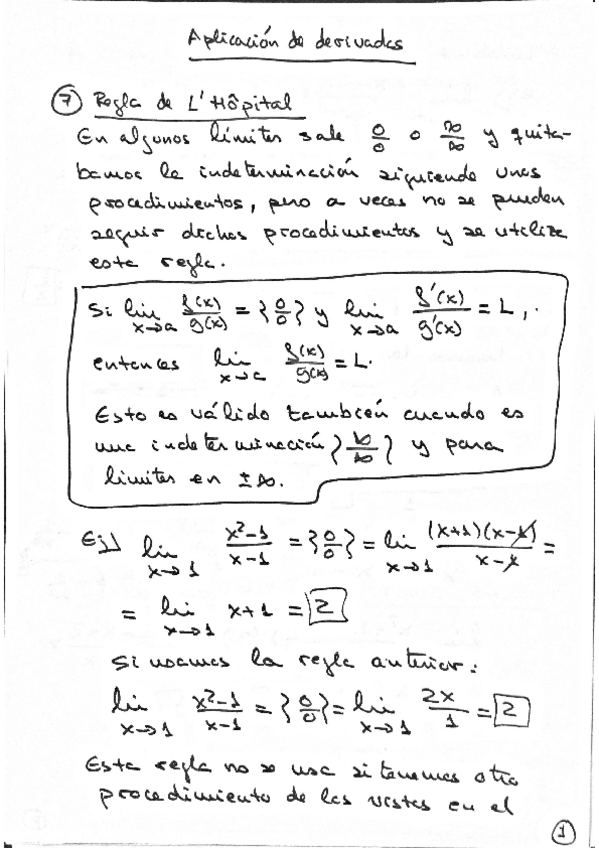 Aplicación de derivadas
⑦ Regla de L'Hôpital
En algunos límites sale 0/0 o ∞/∞ y quita-
bamos la indeterminación siguiendo unos
procedimientos, pero a veces no se pueden
seguir dichos procedimientos y se utiliza
esta regla.
Si lim x→a f(x)/g(x) = {0/0} y lim x→a f'(x)/g'(x) = L,
entonces lim x→a f(x)/g(x) = L.
Esto es válido también cuando es
una indeterminación {∞/∞} y para
límites en ±∞.
Ej] lim x→1 x²-1/x-1 = {0/0} = lim x→1 (x+1)(x-1)/x-1 =
= lim x→1 x+1 = 2
Si usamos la regla anterior:
lim x→1 x²-1/x-1 = {0/0} = lim x→1 2x/1 = 2
Esta regla no se usa si tenemos otro
procedimiento de los vistos en el
①